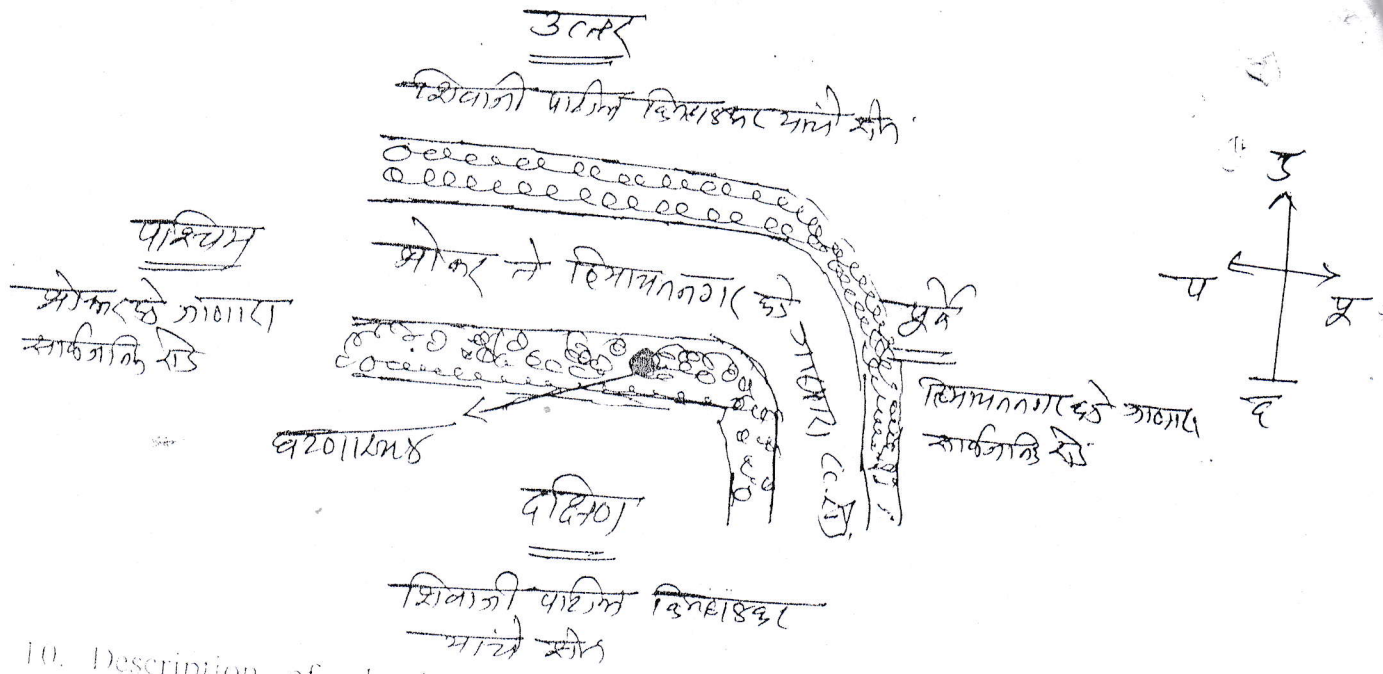 उत्तर
शिवाजी पाटील किन्हाळकर यांचे शेत
उ
प
पू
द
पश्चिम
भोकरकडे जाणारा
सार्वजनिक रोड
भोकर ते हिमायतनगर कडे जाणारा रस्ता
पूर्व
हिमायतनगर कडे जाणारा
सार्वजनिक रोड
घटणास्थळ
दक्षिण
शिवाजी पाटील किन्हाळकर
यांचे शेत
10. Description of